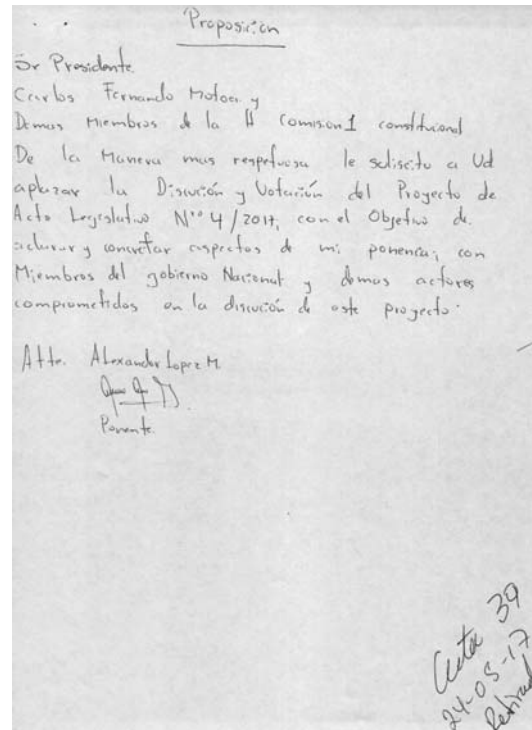 Proposición
Sr Presidente.
Carlos Fernando Motoa y
Demas Miembros de la H Comision 1 constitucional
De la Manera mas respetuosa le solicito a Ud
aplazar la Discución y Votación del Proyecto de
Acto Legislativo Nro 4/2017, con el Objetivo de
aclarar y concretar aspectos de mi ponencia; con
Miembros del gobierno Nacional y demas actores
comprometidos en la discución de este proyecto.
Atte. Alexander Lopez M.
Ponente.
Acta 39
24-05-17
Retirada